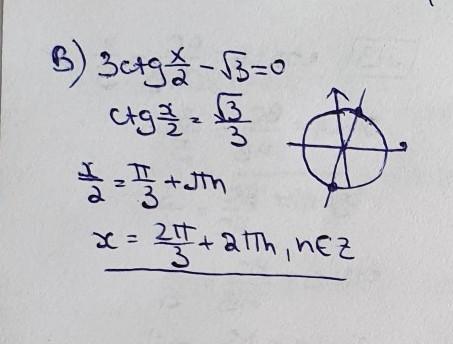 В) 3ctg x/2 - √3 = 0
ctg x/2 = √3/3
x/2 = π/3 + πn
x = 2π/3 + 2πn, n∈Z